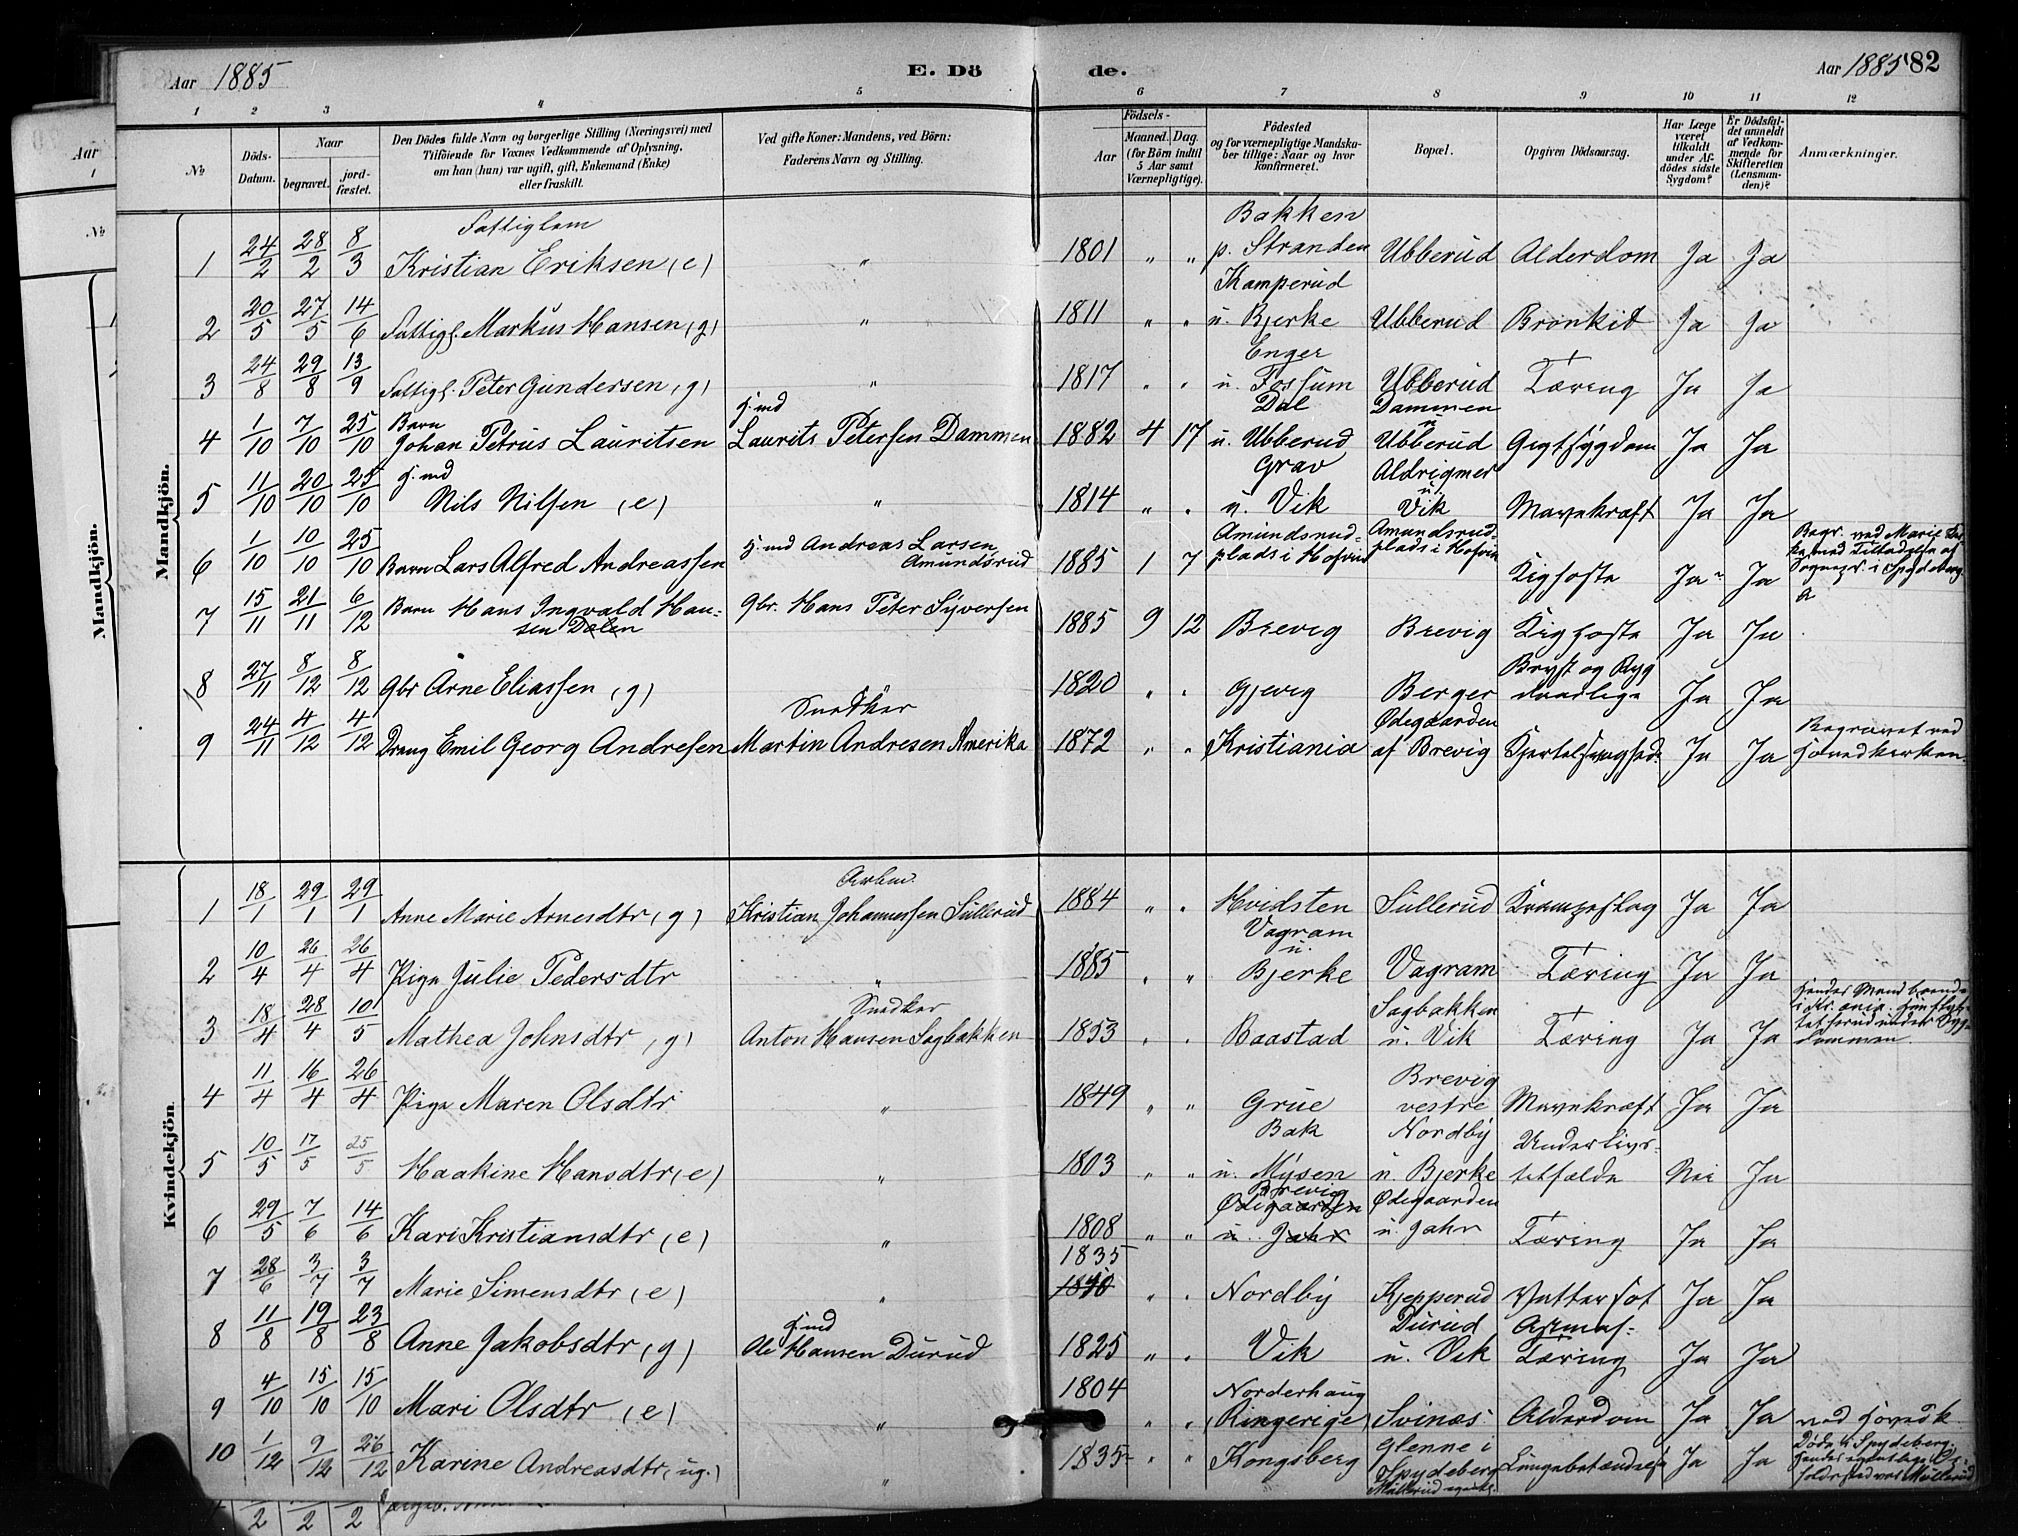 Aar 1885 E. Döde. Aar 1885 82
1 2 3 4 5 6 7 8 9 10 11 12
No
Döds-Datum.
Naar
begravet.
jord-fæstet.
Den Dödes fulde Navn og borgerlige Stilling (Næringsvei) med
Tilföiende for Voxnes Vedkommende af Oplysning,
om han (hun) var ugift, gift, Enkemand (Enke)
eller fraskilt.
Ved gifte Koner: Mandens, ved Börn:
Faderens Navn og Stilling.
Födsels-
Aar
Maaned. Dag.
(for Börn indtil
5 Aar samt
Værnepligtige).
Födested
og for værnepligtige Mandska-
ber tillige: Naar og hvor
konfirmeret.
Bopæl.
Opgiven Dödsaarsag.
Har Læge
været
tilkaldt
under Af-
dödes sidste
Sygdom?
Er Dödsfal-
det anmeldt
af Vedkom-
mende for
Skifteretten
(Lensman-
den)?
Anmærkninger.
Mandkjön.
1 24/2 28/2 8/3 Fattiglem Kristian Eriksen (e) " 1801 " " Bakken p. Stranden Ubberud Alderdom Ja Ja
2 20/5 27/5 14/6 Fattigl. Markus Hansen (g) " 1811 " " Kamperud u. Bjerke Ubberud Bronkit Ja Ja
3 24/8 29/8 13/9 Fattigl. Peter Gundersen (g) " 1817 " " Enger u. Fossum Ubberud Tæring Ja Ja
4 1/10 7/10 25/10 Barn Johan Petrus Lauritsen H.md Laurits Petersen Dammen 1882 4 17 Dal u. Ubberud Dammen u. Ubberud Gigtsygdom Ja Ja
5 11/10 20/10 25/10 H.md Nils Nilsen (e) " 1814 " " Grav u. Vik Aldrigmer u. Vik Mavekræft Ja Ja
6 1/10 10/10 25/10 Barn Lars Alfred Andreassen H.md Andreas Larsen Amundsrud 1885 1 7 Amundsrud-plads i Hofvin Amundsrud-plads i Hofvin Kighoste Ja Ja Begr. ved Marie med Tilladelse af Sognepr. i Spydeberg
7 15/11 21/11 6/12 Barn Hans Ingvald Han-sen Dalen Gbr. Hans Peter Syversen 1885 9 12 Brevig Brevig Kighoste Ja Ja
8 27/11 8/12 8/12 Gbr Arne Eliassen (g) 1820 " " Gjevig Berger Bryst og Ryg Ja Ja
9 24/11 4/12 4/12 Dreng Emil Georg Andresen Snedker Martin Andresen Amerika 1872 " " Kristiania Ødegaarden af Brevig Kjertelsvaghed Ja Ja Begravet ved Hovedkirken.
Kvindekjön
1 18/1 29/1 29/1 Anne Marie Arnesdtr (g) Arbm. Kristian Johannessen Sullerud 1884 " " Hvidsten Sullerud Krampeslag Ja Ja
2 10/4 26/4 26/4 Pige Julie Pedersdtr " 1885 " " Vagram u. Bjerke Vagram Tæring Ja Ja
3 18/4 28/4 10/5 Mathea Johnsdtr (g) Snedker Anton Hansen Sagbakken 1853 " " Baastad Sagbakken u. Vik Tæring Ja Ja Hendes Mand under Syg-dommen
4 11/4 16/4 26/4 Pige Maren Olsdtr " 1849 " " Grue Brevig vestre Mavekræft Ja Ja
5 10/5 17/5 25/5 Haakine Hansdtr (e) " 1803 " " Bak u. Mysen Nordby u. Bjerke Underlivs-tilfælde Nei Ja
6 29/5 7/6 14/6 Kari Kristiansdtr (e) " 1808 " " Brevig Ødegaarden u. Jahr Ødegaarden u. Jahr Tæring Ja Ja
7 28/6 3/7 3/7 Marie Simensdtr (e) " 1835 1810 " " Nordby Kjepperud Vattersot Ja Ja
8 11/8 19/8 23/8 Anne Jakobsdtr (g) H.md Ole Hansen Durud 1825 " " Vik Durud u. Vik Tæring Ja Ja
9 4/10 15/10 15/10 Mari Olsdtr (e) " 1804 " " Norderhaug (Ringerige) Svinæs Alderdom Ja Ja ved Hovedk.
10 1/12 9/12 26/12 Karine Andreasdtr (ug.) " 1835 " " Kongsberg Glenne i Spydeberg Müllerud Lungebetændelse Ja Ja Döde i Spydeberg. Hendes egentlige Op-holdssted var Müllerud